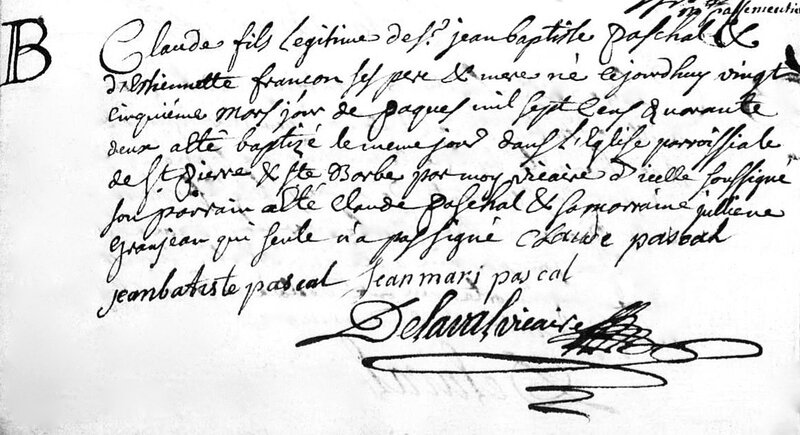 passementier
B
Claude fils legitime de sr. jean baptiste paschal &
d'Ethiennette francon ses pere & mere né cejourdhuy vingt
cinquiéme mars jour de paques mil sept cens quarante
deux a été baptizé le meme jour dans l'Eglise parroissiale
de st. pierre & ste Barbe par moy vicaire d'icelle soussigné
son parrain a été Claude paschal & sa marraine julliene
Granjean qui seule n'a pas signé Claude pascal
jean batiste pascal jean mari pascal
Delaval vicaire